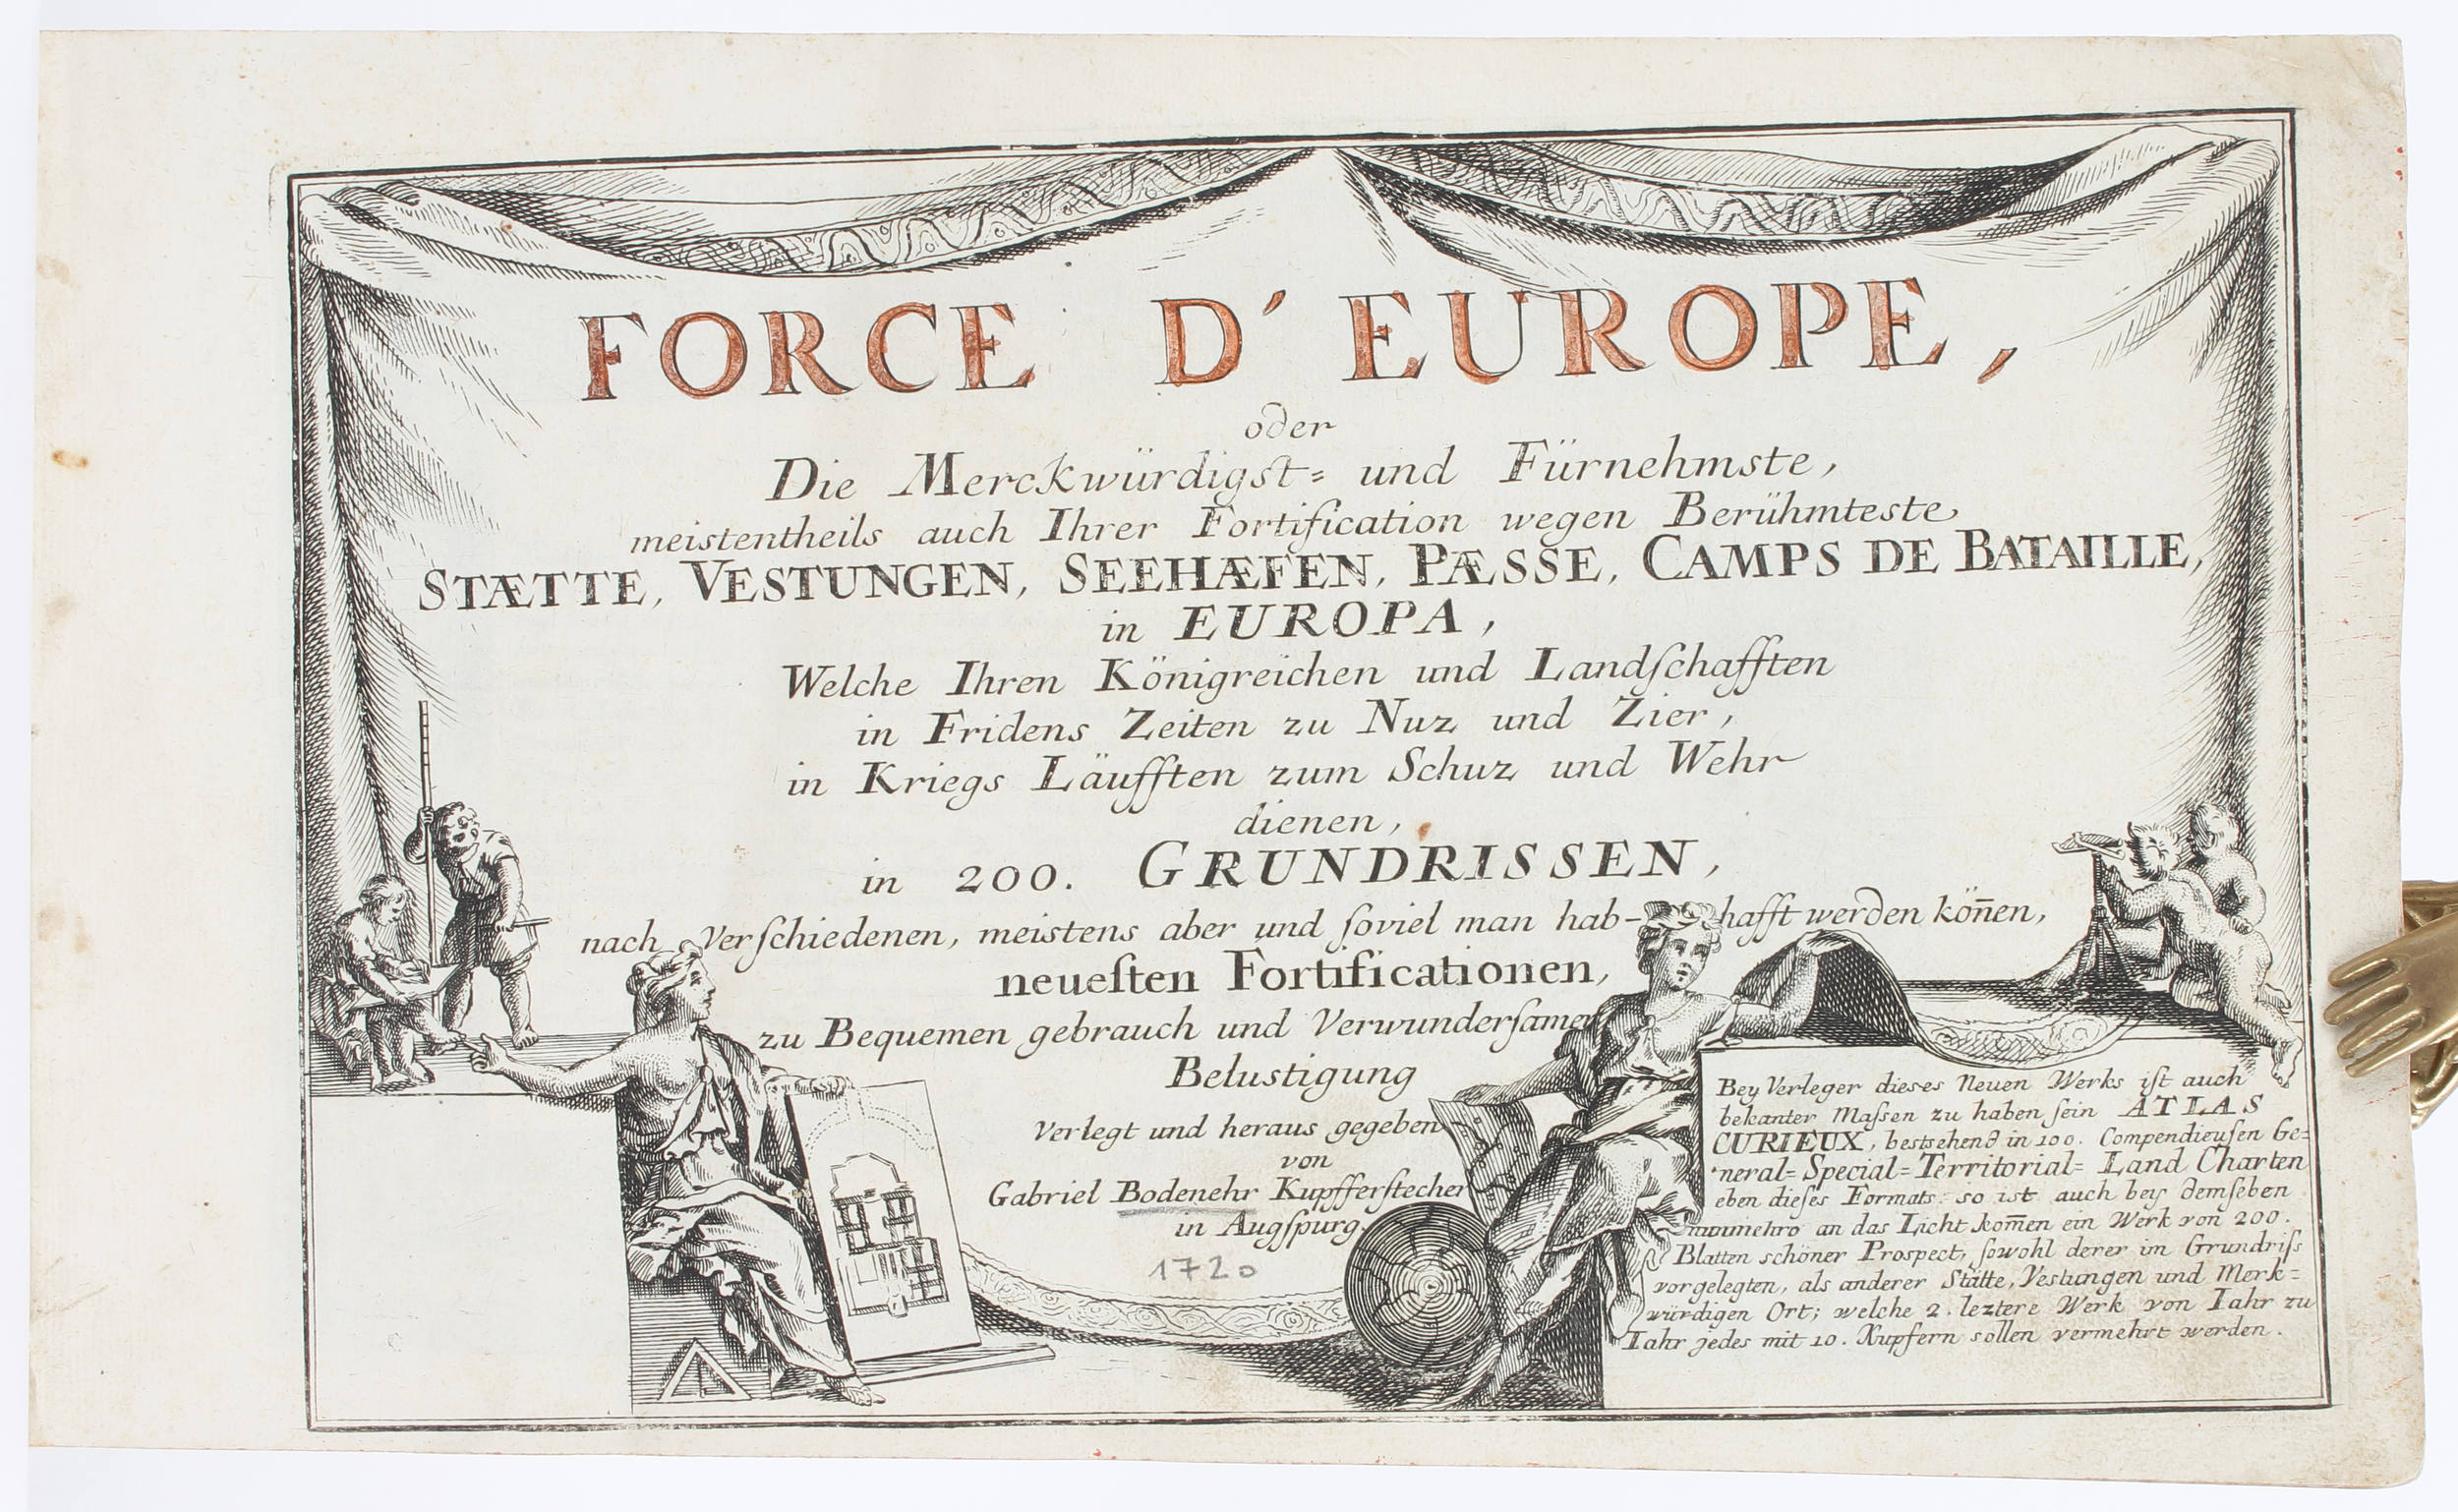 FORCE D' EUROPE,
oder
Die Merckwürdigst= und Fürnehmste,
meistentheils auch Ihrer Fortification wegen Berühmteste
STÆTTE, VESTUNGEN, SEEHÆFEN, PÆSSE, CAMPS DE BATAILLE,
in EUROPA,
Welche Ihren Königreichen und Landſchafften
in Fridens Zeiten zu Nuz und Zier,
in Kriegs Läufften zum Schuz und Wehr
dienen,
in 200. GRUNDRISSEN,
nach Verſchiedenen, meistens aber und ſoviel man hab- hafft werden kön̄en,
neueſten Fortificationen,
zu Bequemen gebrauch und Verwunderſamer
Belustigung
Verlegt und heraus gegeben
von
Gabriel Bodenehr Kupfferſtecher
in Augſpurg.
1720
Bey Verleger dieses Neuen Werks iſt auch
bekanter Maſsen zu haben ſein ATLAS
CURIEUX, bestehend in 100. Compendieuſen Ge=
neral= Special= Territorial= Land Charten
eben dieſes Formats: so ist auch bey demſeben
nunmehro an das Licht kom̄en ein Werk von 200.
Blatten schöner Prospect, ſowohl derer im Grundriſs
vorgelegten, als anderer Stätte, Vestungen und Merk=
würdigen Ort; welche 2. leztere Werk von Iahr zu
Iahr jedes mit 10. Kupfern sollen vermehrt werden.